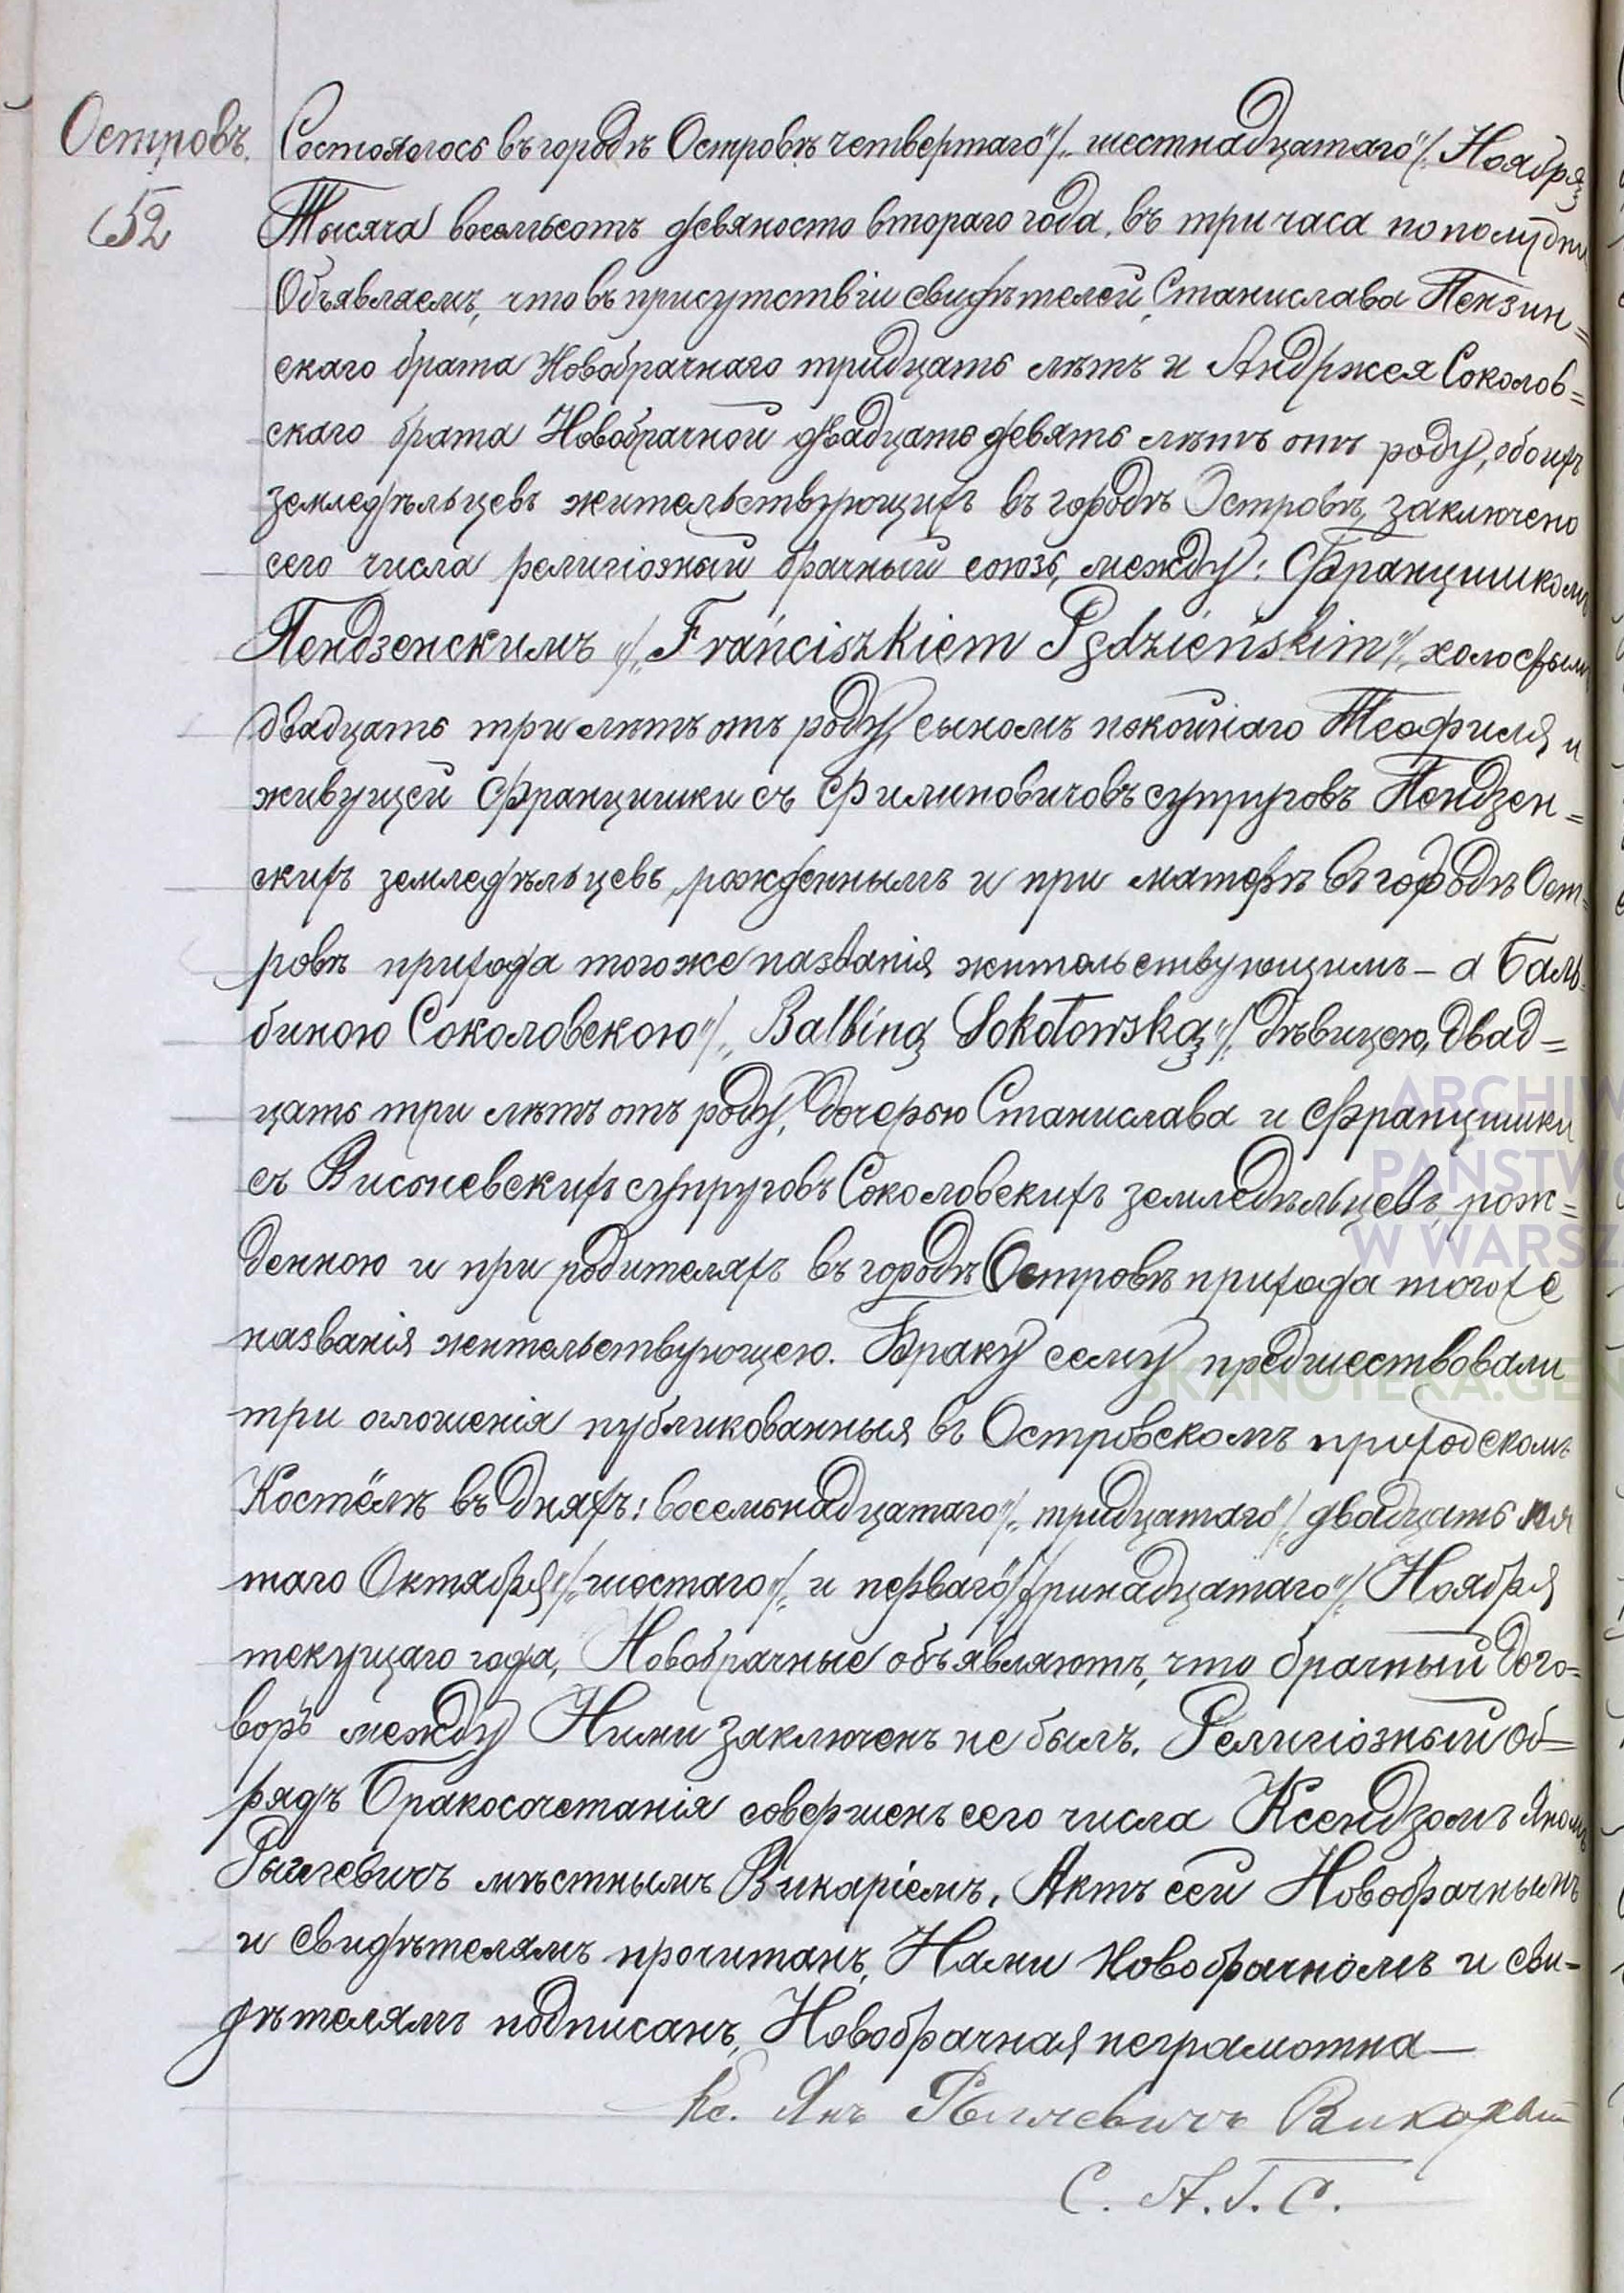 Островъ.
52
Состоялось въ городѣ Островѣ четвертаго /шестнадцатаго/ Ноября
Тысяча восемьсотъ девяносто втораго года, въ три часа по полудни
Объявляемъ, что въ присутствіи свидѣтелей, Станислава Пензин=
скаго брата Новобрачнаго тридцать лѣтъ и Андржея Соколов=
скаго брата Новобрачной двадцать девять лѣтъ отъ роду, обоихъ
земледѣльцевъ жительствующихъ въ городѣ Островѣ, заключено
сего числа религіозный брачный союзъ, между: Францишкомъ
Пендзенскимъ /„Franciszkiem Pędzieńskim"/, холостымъ
двадцать три лѣтъ отъ роду, сыномъ покойнаго Теофиля и
живущей Францишки съ Филиновичовъ супруговъ Пендзен=
скихъ земледѣльцевъ, рожденнымъ и при матерѣ въ городѣ Ост=
ровѣ прихода тогоже названія жительствующимъ – а Баль=
биною Соколовскою /„Balbiną Sokołowską"/ дѣвицею, двад=
цать три лѣтъ отъ роду, дочерью Станислава и Францишки
съ Висьневскихъ супруговъ Соколовскихъ земледѣльцевъ, рож=
денною и при родителяхъ въ городѣ Островѣ прихода тогоже
названія жительствующею. Браку сему предшествовали
три оглошенія публикованныя въ Островскомъ приходскомъ
Костёлѣ въ дняхъ: восемьнадцатаго /тридцатаго/ двадцать пя
таго Октября /шестаго/ и перваго /тринадцатаго/ Ноября
текущаго года, Новобрачные объявляютъ, что брачный дого=
воръ между Ними заключенъ не былъ. Религіозный об=
рядъ Бракосочетанія совершенъ сего числа Ксендзомъ Яномъ
мѣстнымъ Викаріемъ. Актъ сей Новобрачнымъ
и свидѣтелямъ прочитанъ, Нами Новобрачномъ и сви-
дѣтелямъ подписанъ, Новобрачная неграмотна —
Кс. Янъ
С. А. Г. С.
ARCHIW
PAŃSTWO
W WARSZA
SKANOTEKA.GEN